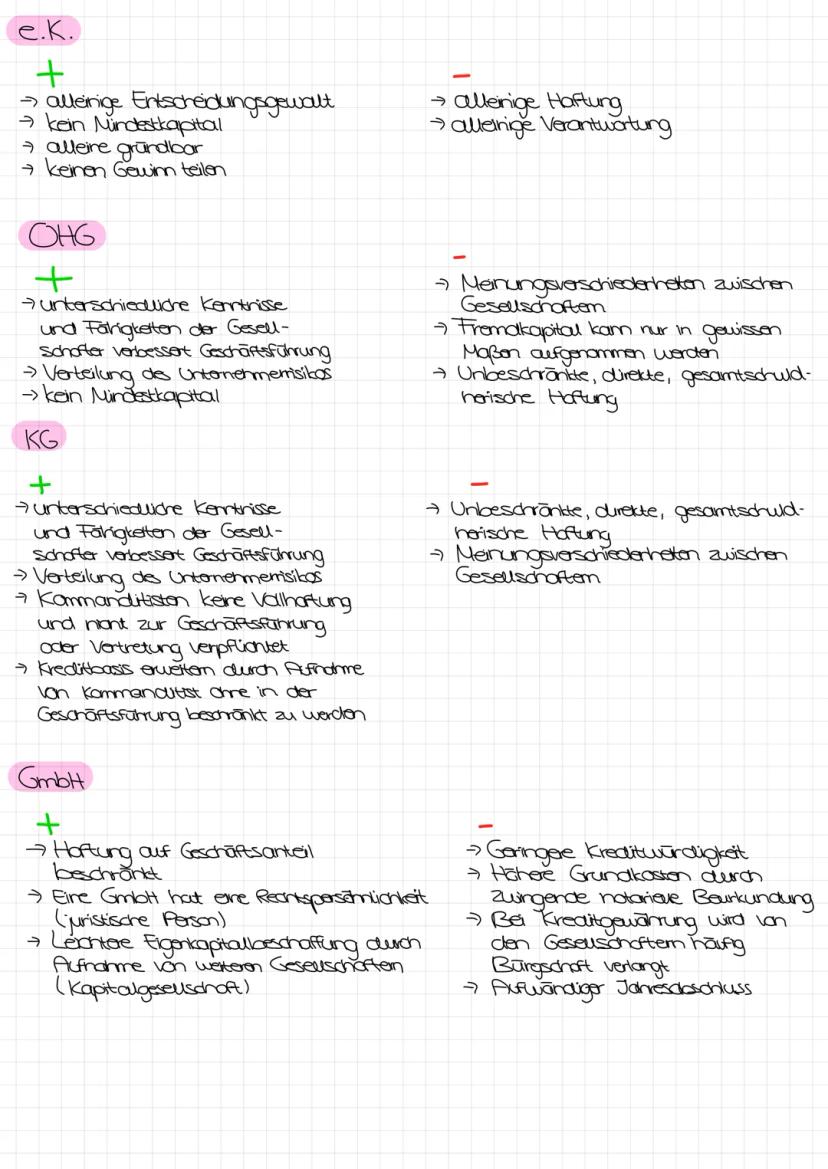 e.K.
+
→ alleinige Entscheidungsgewalt
→ kein Mindestkapital
→ alleine gründbar
→ keinen Gewinn teilen
-
→ alleinige Haftung
→ alleinige Verantwortung
OHG
+
→ unterschiedliche Kenntnisse
und Fähigkeiten der Gesell-
schafter verbessert Geschäftsführung
→ Verteilung des Unternehmerrisikos
→ kein Mindestkapital
-
→ Meinungsverschiedenheiten zwischen
Gesellschaftern
→ Fremdkapital kann nur in gewissen
Maßen aufgenommen werden
→ Unbeschränkte, direkte, gesamtschuld-
nerische Haftung
KG
+
→ unterschiedliche Kenntnisse
und Fähigkeiten der Gesell-
schafter verbessert Geschäftsführung
→ Verteilung des Unternehmerrisikos
→ Kommanditisten keine Vollhaftung
und nicht zur Geschäftsführung
oder Vertretung verpflichtet
→ Kreditbasis erweitern durch Aufnahme
von Kommanditist ohne in der
Geschäftsführung beschränkt zu werden
-
→ Unbeschränkte, direkte, gesamtschuld-
nerische Haftung
→ Meinungsverschiedenheiten zwischen
Gesellschaftern
GmbH
+
→ Haftung auf Geschäftsanteil
beschränkt
→ Eine GmbH hat eine Rechtspersönlichkeit
(juristische Person)
→ Leichtere Eigenkapitalbeschaffung durch
Aufnahme von weiteren Gesellschaftern
(Kapitalgesellschaft)
-
→ Geringere Kreditwürdigkeit
→ Höhere Grundkosten durch
zwingende notarielle Beurkundung
→ Bei Kreditgewährung wird von
den Gesellschaftern häufig
Bürgschaft verlangt
→ Aufwändiger Jahresabschluss